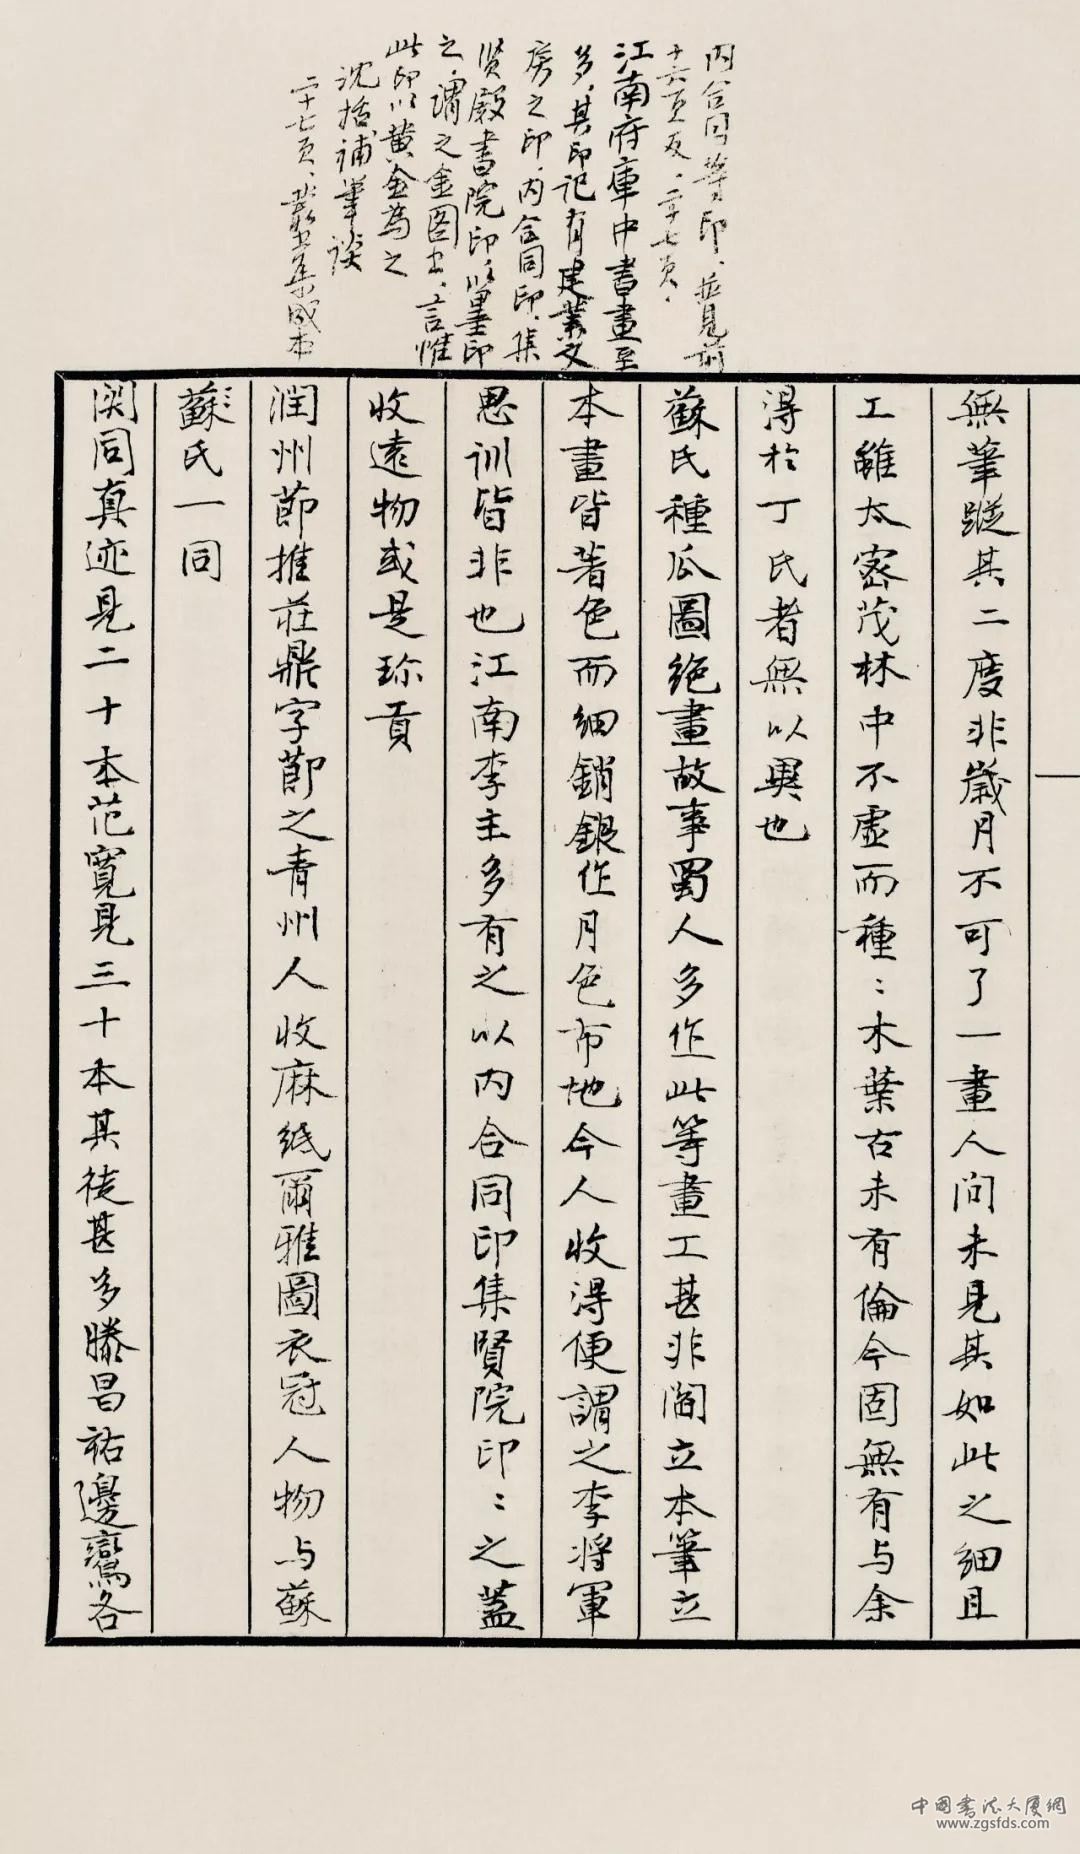 内合同等印、並見前
十六頁反、二十七頁、
江南府庫中書畫至
多、其印記有建業文
房之印、内合同印、集
賢殿書院印、以墨印
之、謂之金图书、言惟
此印以黄金為之
沈括補筆談
二十七頁、叢书集成本
無筆蹤其二度非歲月不可了一畫人间未見其如此之細且
工雖太密茂林中不虛而種：木葉古未有倫今固無有与余
得於丁氏者無以異也
蘇氏種瓜圖絶畫故事蜀人多作此等畫工甚非閻立本筆立
本畫皆著色而細銷銀作月色布地今人收得便謂之李将軍
思训皆非也江南李主多有之以内合同印集賢院印：之蓋
收遠物或是珎貢
润州莭推莊鼎字莭之青州人收麻紙爾雅圖衣冠人物与蘇
蘇氏一同
関同真迹見二十本范寬見三十本其徒甚多滕昌祐邊鸞各
中国书法大厦網
www.zgsfds.com